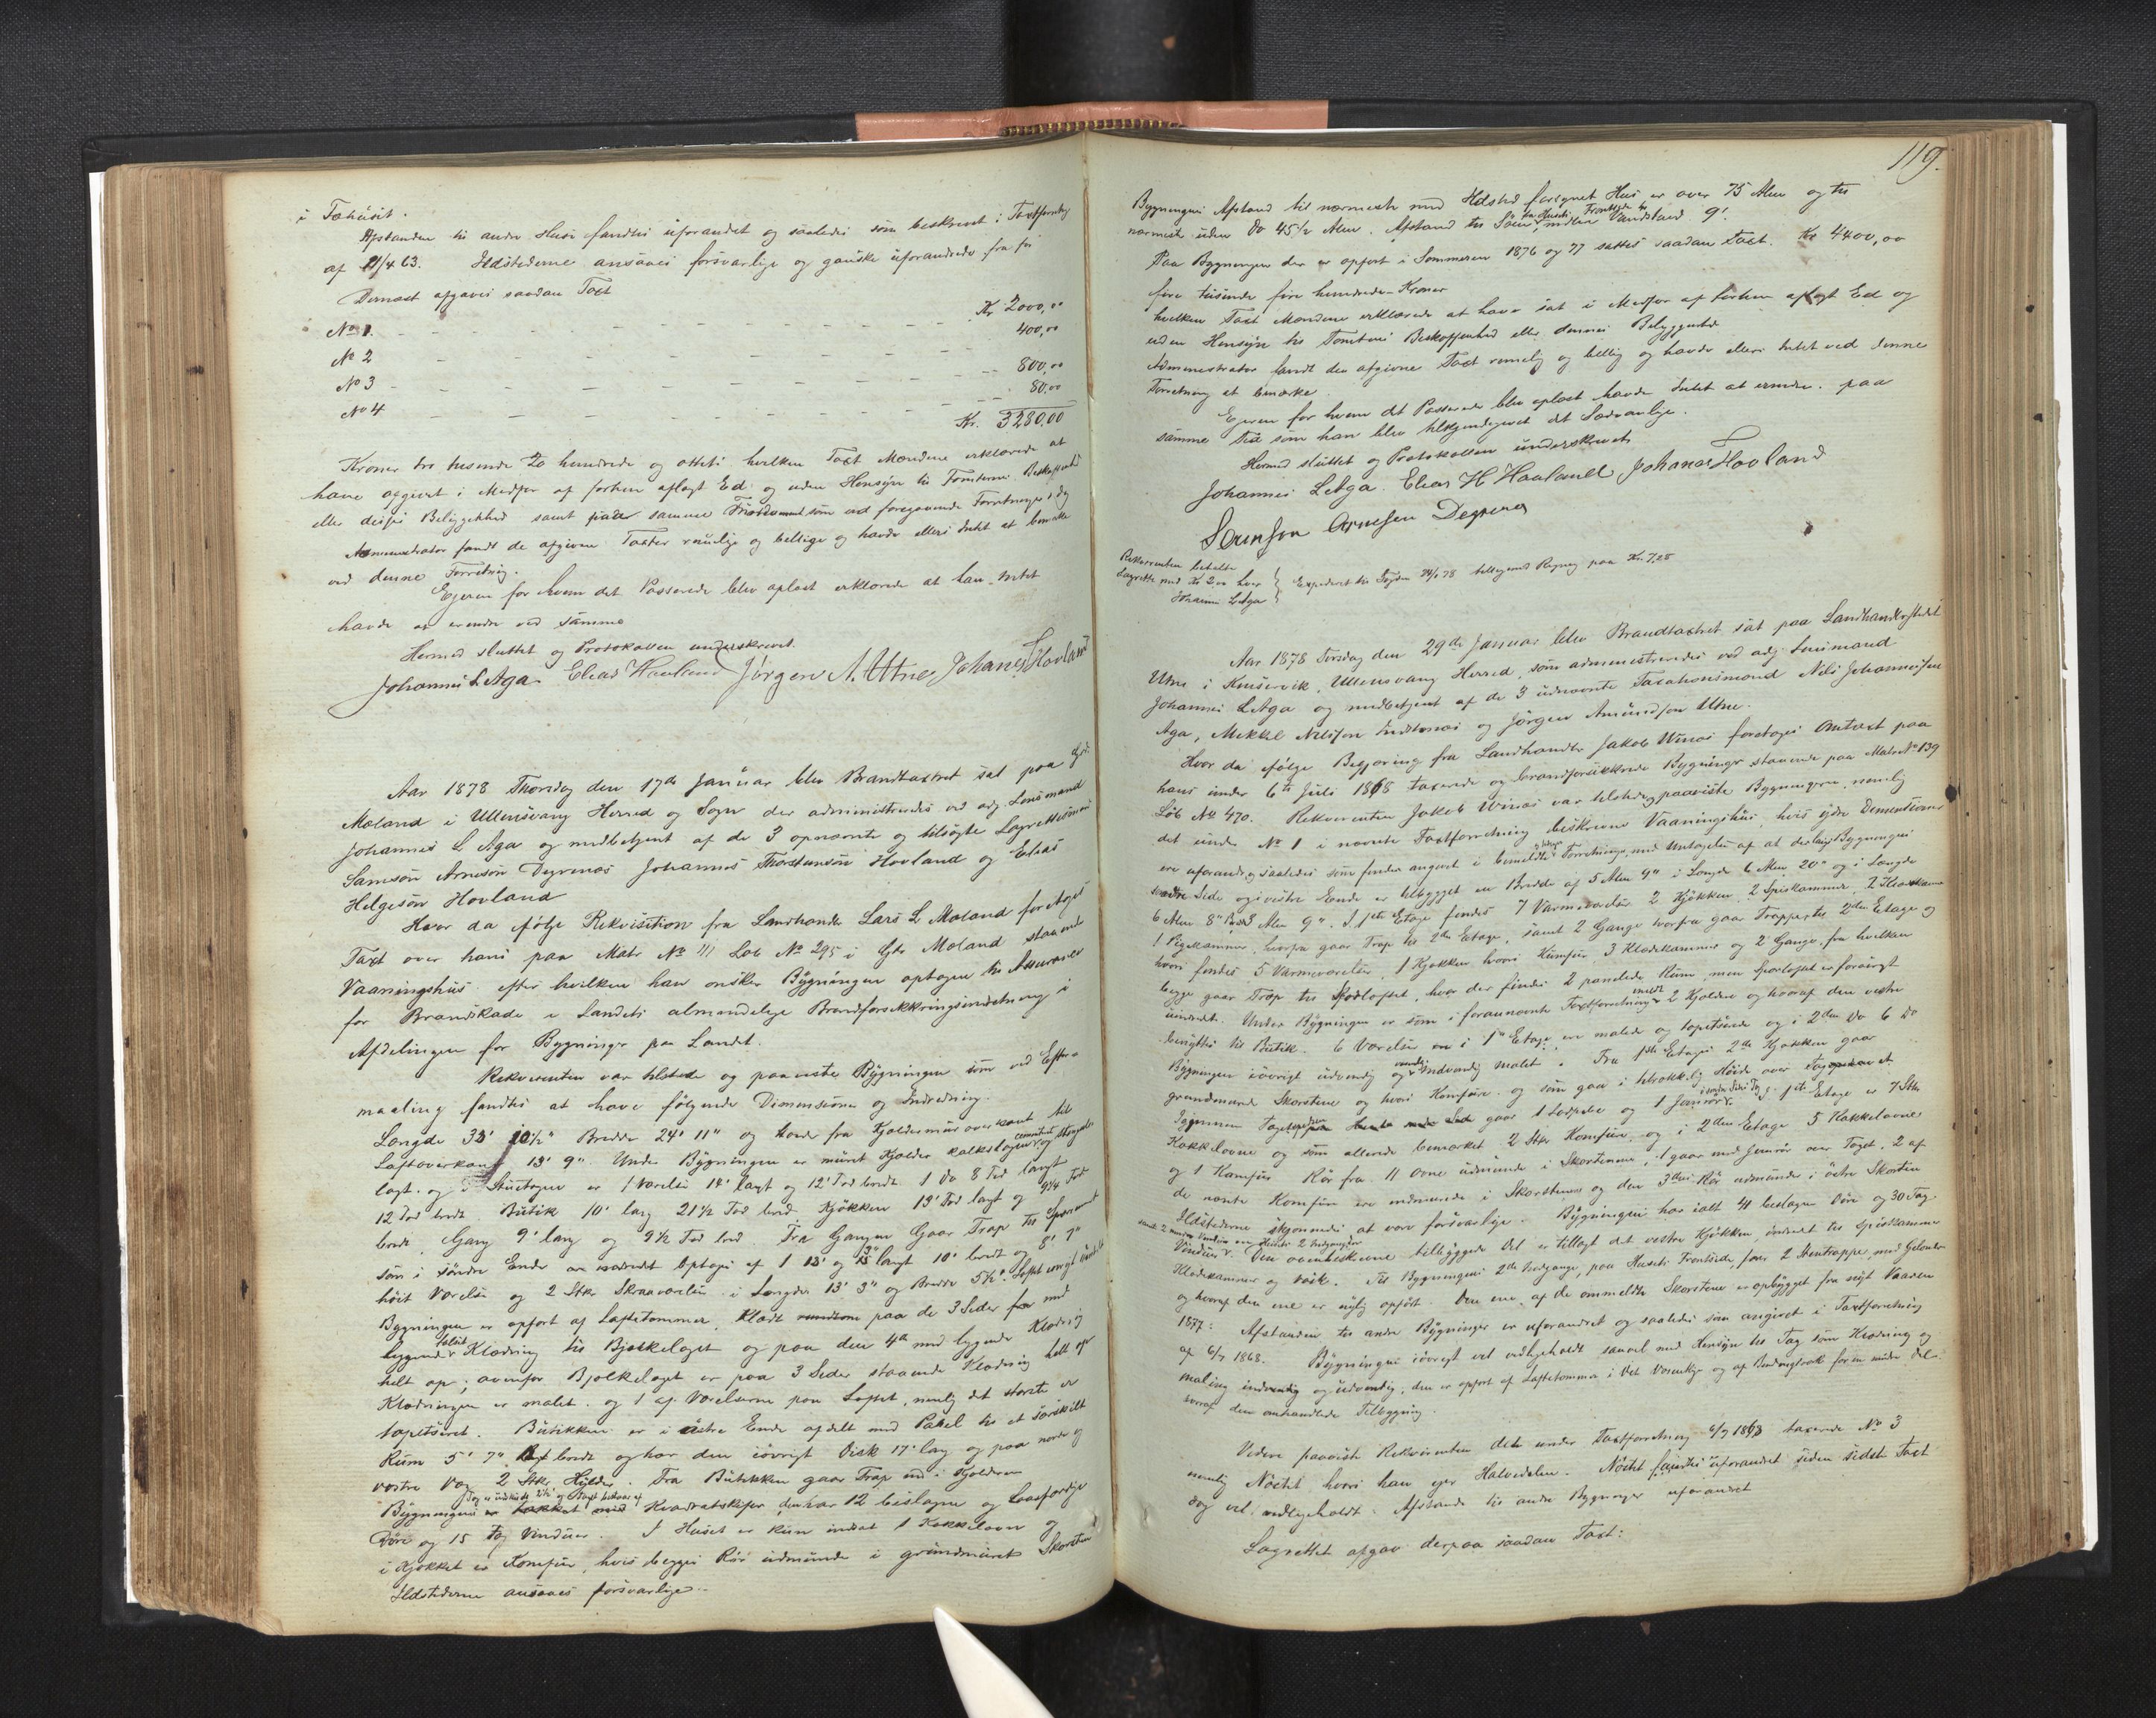 i Fæhuset.
Afstanden til andre Huse fandtes uforandret og saaledes som beskrevet i Taxtforretng
af 21/4 63. Ildstederne ansaaes forsvarlige og ganske uforandrede fra før
Dernæst afgaves saadan Taxt
No 1. - - - - - - - - - - - - - Kr 2000,00
No 2 - - - - - - - - - - - - 400,00
No 3 - - - - - - - - - - - - 800,00
No 4 - - - - - - - - - - - - 80,00
Kr. 3280,00
Kroner tre tusende to hundrede og otteti hvilken Taxt Mændene erklærede at
have afgivet i Medfør af forhen aflagt Ed og uden Hensyn til Tomternes Beskaffenhed
eller deres Beliggenhed samt paa samme som ved foregaaende Forretninger i Dag
Administrator fandt de afgivne Taxter rimelige og billige og havde ellers Intet at bemærke
ved denne Forretning.
Eieren for hvem det Passerede blev oplæst erklærede at han Intet
havde at erindre ved samme
Hermed sluttet og Protokollen underskrevet.
Johannes L. Aga Elias Haaland Jørgen A. Utne Johanes Hovland
Aar 1878 Thorsdag den 17de Januar blev Brandtaxtret sat paa Grd.
Mæland i Ullensvang Herred og Sogn der administreredes ved adj. Lensmand
Johannes L Aga og medbetjent af de 3 opnævnte og tilsagte Lagrettesmænd
Samson Arneson Degrenæs Johannes Thorstensøn Hovland og Elias
Helgesøn Hovland
Hvor da ifølge Rekvisition fra Landhandler Lars L. Mæland foretoges
Taxt over hans paa Matr No 111 Løb No 295 i Gdr Mæland staaende
Vaaningshus efter hvilken han ønsker Bygningen optagen til Assurance
for Brandskade i Landets almindelige Brandforsikkringsindretning i
Afdelingen for Bygninger paa Landet.
Rekvirenten var tilstede og paaviste Bygningen som ved Efter-
maaling fandtes at have følgende Dimensioner og Indredning.
Længde 33' 10½" Bredde 24' 11" og Høide fra Kjældermur overkant til
Loftoverkant 13' 9". Under Bygningen er muret Kjælder kalkslagen cementeret og
lagt. og i Stueetagen er 1 Værelse 14' langt og 12' Fod bredt. 1 Do 8 Fod langt
12 Fod bredt. Butik 10' lang 21½ Fod bred Kjøkken 13' Fod langt og 9¾ Fod
bredt. Gang 9' lang og 9½ Fod bred. Fra Gangen Gaar Trap til
som i søndre Ende er indredet Optages af 1 13' og langt 10' bredt og 8' 7"
høit Værelse og 2 Stkr Skraaværelser i Længde 13' 3" og Bredde 5½". Loftet øvrigt
Bygningen er opført af Laftetømmer, Klædt rundtom paa de 3 Sider med
liggende Klædning til Bjælkelaget og paa den 4de med liggende Klædning
helt op; ovenfor Bjælkelaget er paa 3 Sider staaende Klædning helt op
Klædningen er malet. og 1 af Værelserne paa Loftet, nemlig det største er
tapetseret. Butikken er i østre Ende afdelt med Panel til et særskilt
Rum 5' 7" bredt og har den iøvrigt Disk 17' lang og paa nordre og
vestre Væg 2 Stkr Hylder. Fra Butikken gaar Trap ned i Kjælderen
Bygningens Kvadratskifer, den har 12 beslagne og Laasfærdige
Døre og 15 fag Vinduer. I Huset er kun indsat 1 Kakkelovn og
i Kjøkket er Komfur, hvis begges Rør udmunde i grundmuret Skorsten
Ildstederne ansaaes forsvarlige.
119.
Bygningens Afstand til nærmeste med Ildsted forsynet Hus er over 75 Alen og til
nærmeste uden Do 45½ Alen. Afstand til Søen fra Husets Frontside til midlere Vandstand 9'.
Paa Bygningen der er opført i Sommeren 1876 og 77 sattes saadan Taxt. Kr 4400,00
fire tusinde fire hundrede Kroner
hvilken Taxt Mændene erklærede at have sat i Medfør af forhen aflagt Ed og
uden Hensyn til Tomtens Beskaffenhed eller dennes Beliggenhed
Administrator fandt den afgivne Taxt rimelig og billig og havde ellers Intet ved denne
Forretning at bemærke.
Eieren for hvem det Passerede blev oplæst havde Intet at erindre. paa
samme Tid som han blev tilkjendegivet det Sædvanlige.
Hermed sluttet og Protokollen underskrevet
Johannes L Aga. Elias H Haaland Johanes Hovland
Samson Arnesen Degrenes
Rekvirenten betalte
Lagrette med Kr 2oo hver
Johannes L Aga
Expederet til Fogden 24/1 78 tilligemed Regning paa Kr. 7,20
Aar 1878 Tirsdag den 29de Januar blev Brandtaxtret sat paa Landhandlerstedet
Utne i Kinservik, Ullensvang Herred, som administreredes ved adj. Lensmand
Johannes L Aga og medbetjent af de 3 udnævnte Taxationsmænd Nils Johannessen
Aga, Mikkel Nilssøn Instenæs og Jørgen Amundsøn Utne.
Hvor da ifølge Begjæring fra Landhandler Jakob Winæs foretoges Omtaxt paa
hans under 6te Juli 1868 taxerede og brandforsikkrede Bygninger staaende paa Matr No 139
Løb No 470. Rekvirenten Jakob Winæs var tilstede og paaviste Bygningerne, nemlig
det under No 1 i nævnte Taxtforretning beskrevne Vaaningshus, hvis ydre Dimentioner
ere uforandr. og saaledes som findes angivet i bemeldte Forretninger, med Undtagelse af at der langs Bygningens
søndre Side og i vestre Ende er tilbygget en Bredde af 5 Alen 9" i Længde 6 Alen 20" og i Længde
6 Alen 8" Bredde 3 Alen 9". I 1ste Etage findes 7 Varmeværelser 2 Kjøkken, 2 Spiskammer, 2 Klædekammer
1 Pigekammer, hvorfra gaar Trap til 2den Etage, samt 2 Gange hvorfra gaar Trapper til 2den Etage og
hvori findes 5 Varmeværelser, 1 Kjøkken hvori Kumfur, 3 Klædekammer og 2 Gange, fra hvilken
begge gaar Trap til Mørkloftet, hvor der findes 2 panelede Rum, men Spærloftet er forøvrigt
uindredt. Under Bygningen er som i forannævnte Taxtforretning meldt 2 Kjældere og hvoraf den vestre
benyttes til Butik. 6 Værelser er i 1ste Etage ere malede og tapetserede og i 2den Do 6 Do
Bygningen iøvrigt udvendig og Indvendig malet. Fra 1ste Etages 2de Kjøkken gaar
grundmurede Skorstene og hvori Komfure. og som gaa i tilbørlig Høide over Taget.
Igjennem gaar 1 Lodpibe og 1 Jernrør. I 1ste Etage er 7 Stkr
Kakkelovne og som allerede bemærket 2 Stkr Komfure, og i 2den Etage 5 Kakkelovne
og 1 Kamfur Rør fra 11 Ovne udmunde i Skorstenene, 1 gaar med Jernrør over Taget. 2 af
de nævnte Komfure ere indmurede i Skorstenene og den 3dies Rør udmunder i østre Skorsten
Ildstederne skjønnedes at være forsvarlige. Bygningen har ialt 41 beslagne Døre og 30 Fag
Vinduer. Den ovenbeskrevne tilbyggede Del er tillagt det vestre Kjøkken, indredet til Spiskammer
Klædekammer og Vask. Til Bygningens 2de Indgange, paa Husets Frontside, fører 2 Stentrapper, med Gelænder
og hvoraf den ene er nylig opført. Den ene af de ommeldte Skorstene er opbygget fra nyt Vaaren
1877. Afstanden til andre Bygninger er uforandret og saaledes som angivet i Taxtforretning
af 6/7 1868. Bygningen iøvrigt vel vedligeholdt saavel med Hensyn til Tag som Klædning og
maling indvendig og udvendig, den er opført af Laftetømmer i det Væsentlige og af Bindingsværk for en mindre Del
hvoraf den omhandlede Tilbygning.
Videre paaviste Rekvirenten det under Taxtforretning 6/7 1868 taxerede No 3
nemlig Nøstet hvori han eier Halvedelen. Nøstet fandtes uforandret siden sidste Taxt
og vel vedligeholdt. Afstande til andre Bygninger uforandret
Lagrettet afgav derpaa saadan Taxt: